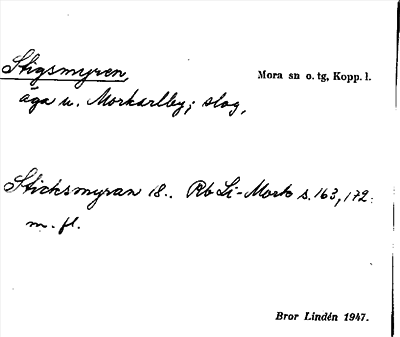 Stigsmyren, Mora sn o. tg, Kopp. l.
äga u. Morkarlby; slog,
Stichsmyran 18.. Rb Li-Mork s. 163, 172.
m. fl.
Bror Lindén 1947.